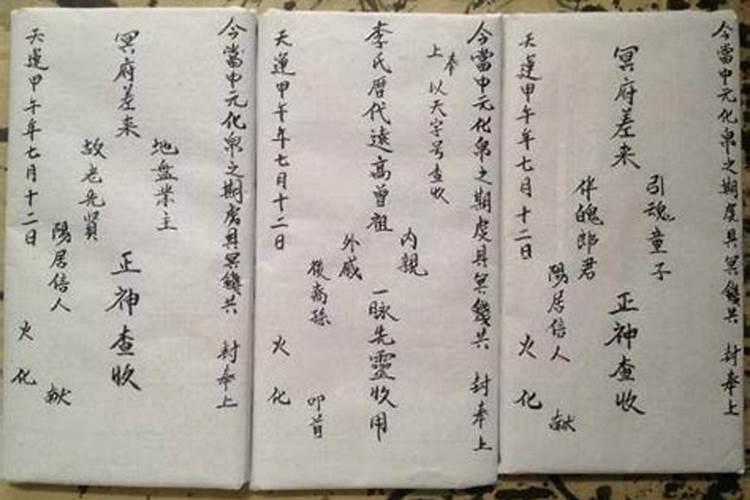 今當中元化帛之期虔具冥錢共 封奉上
引魂童子
冥府差来 正神查收
伴魄郎君
陽居信人 献
天運甲午年七月十二日 火化
今當中元化帛之期虔具冥錢共 封奉上
奉上以天字号查收
內親
李氏暦代遠高曾祖 一脉先靈收用
外戚
後裔孫 叩首
天運甲午年七月十二日 火化
今當中元化帛之期虔具冥錢共 封奉上
地盤業主
冥府差来 正神查收
故老先賢
陽居信人 献
天運甲午年七月十二日 火化